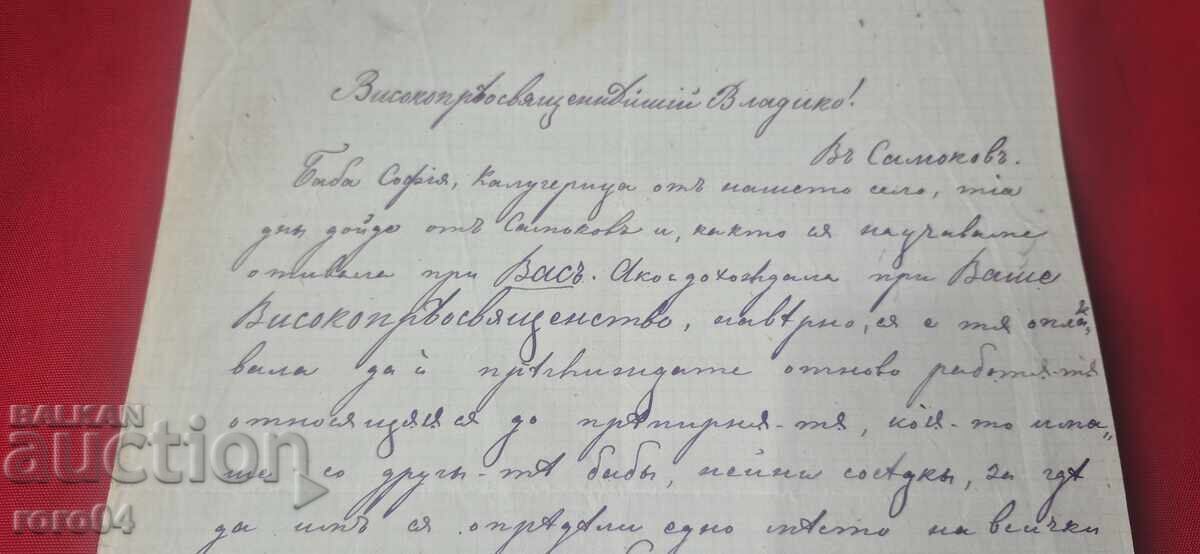 Високопрѣосвященнѣйшій Владико!
Въ Самоковъ.
Баба Софія, Калугерица отъ нашето село, тіа
дны дойде отъ Самоковъ и, както ся научаваме
отивала при Васъ. Ако е дохождала при Ваше
Високопрѣосвященство, навѣрно, ся е тя опла„к
вала да й прѣвиждате отново работѫ-тѫ
относящѫся до прѣпирнѭ-тѫ, коѭ-то има„
ше со другы-тѣ бабы, нейни сосѣдкы, за гдѣ
да имъ ся опрѣдѣли едно мѣсто на всички
BALKAN
auction
roro04